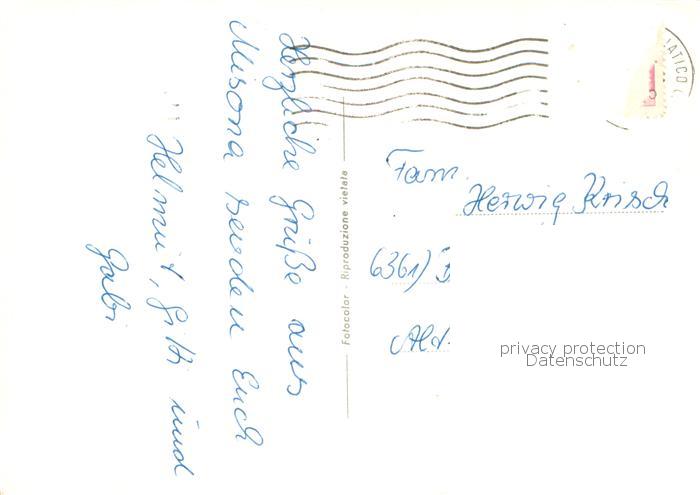 Herzliche Grüße aus
senden Euch
Helmut, Gitti und
Gabi
Fotocolor - Riproduzione vietata
Fam.
Herwig Krisch
6361)
privacy protection
Datenschutz